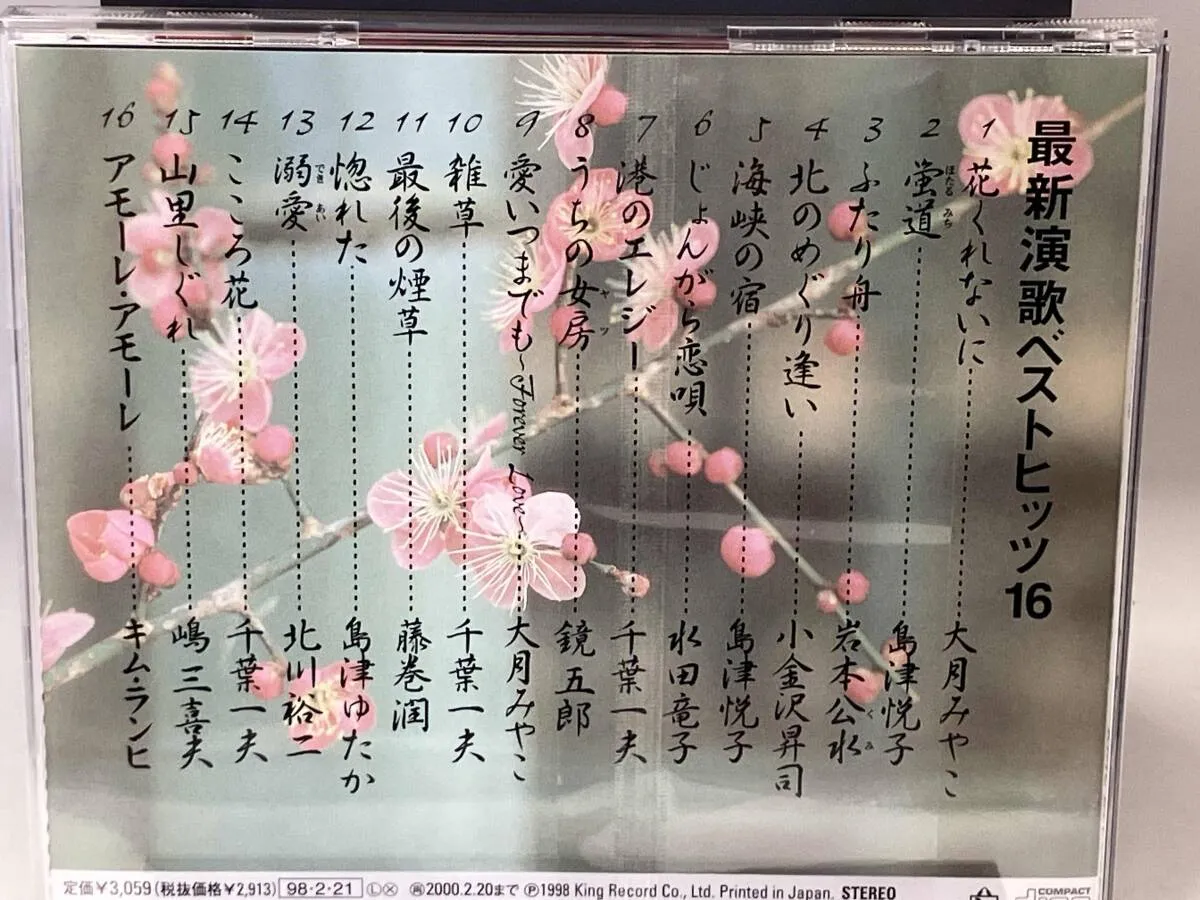 最新演歌ベストヒッツ16
1 花くれないに 大月みやこ
2 蛍道 ほたる みち 島津悦子
3 ふたり舟 岩本公水 くみ
4 北のめぐり逢い 小金沢昇司
5 海峡の宿 島津悦子
6 じょんがら恋唄 水田竜子
7 港のエレジー 千葉一夫
8 うちの女房 ヤツ 鏡五郎
9 愛いつまでも〜Forever Love〜 大月みやこ
10 雑草 千葉一夫
11 最後の煙草 藤巻潤
12 惚れた 島津ゆたか
13 溺愛 でき あい 北川裕二
14 こころ花 千葉一夫
15 山里しぐれ 嶋三喜夫
16 アモーレ・アモーレ キム・ランヒ
定価¥3,059(税抜価格¥2,913) 98・2・21 Ⓛ 2000.2.20まで ℗1998 King Record Co., Ltd. Printed in Japan. STEREO
COMPACT